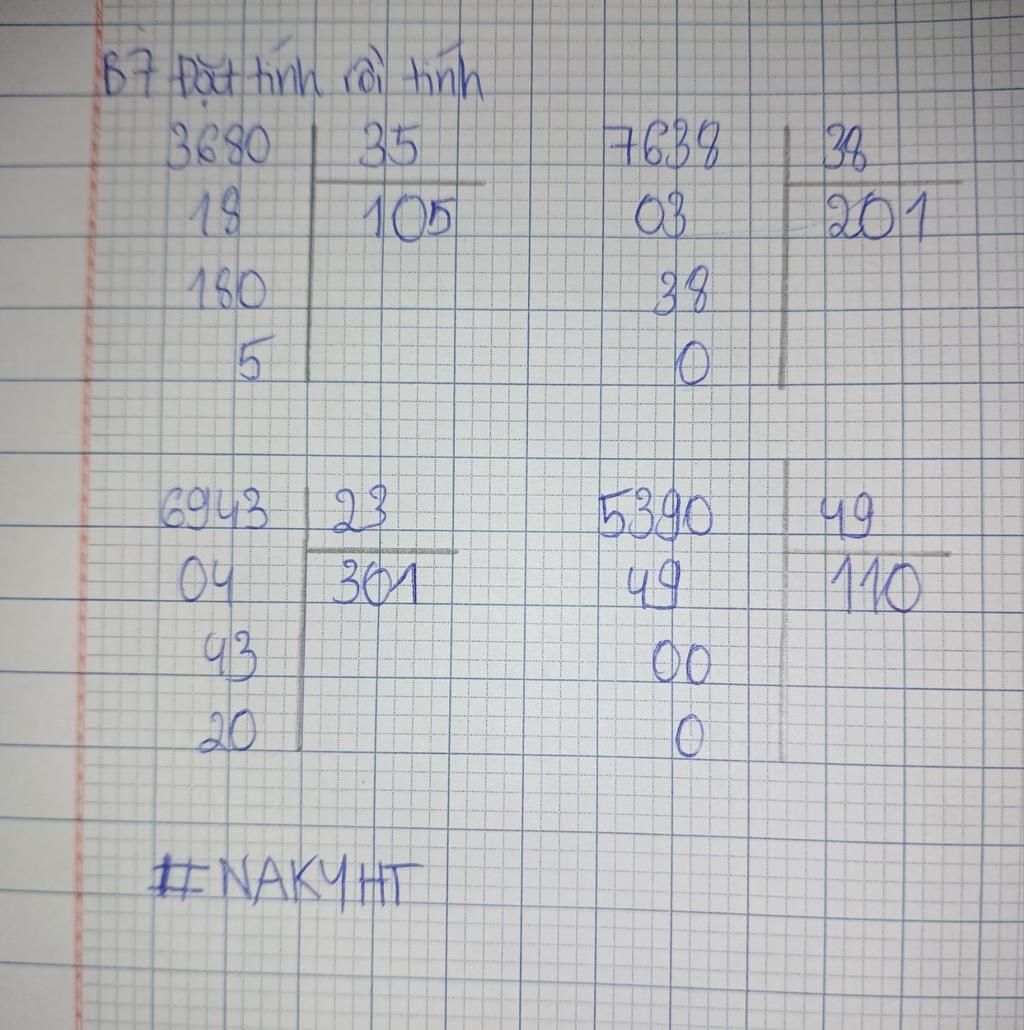 B7 Đặt tính rồi tính
3680 35
18 105
180
5
7638 38
03 201
38
0
6943 23
04 301
43
20
5390 49
49 110
00
0
#NAKYHT